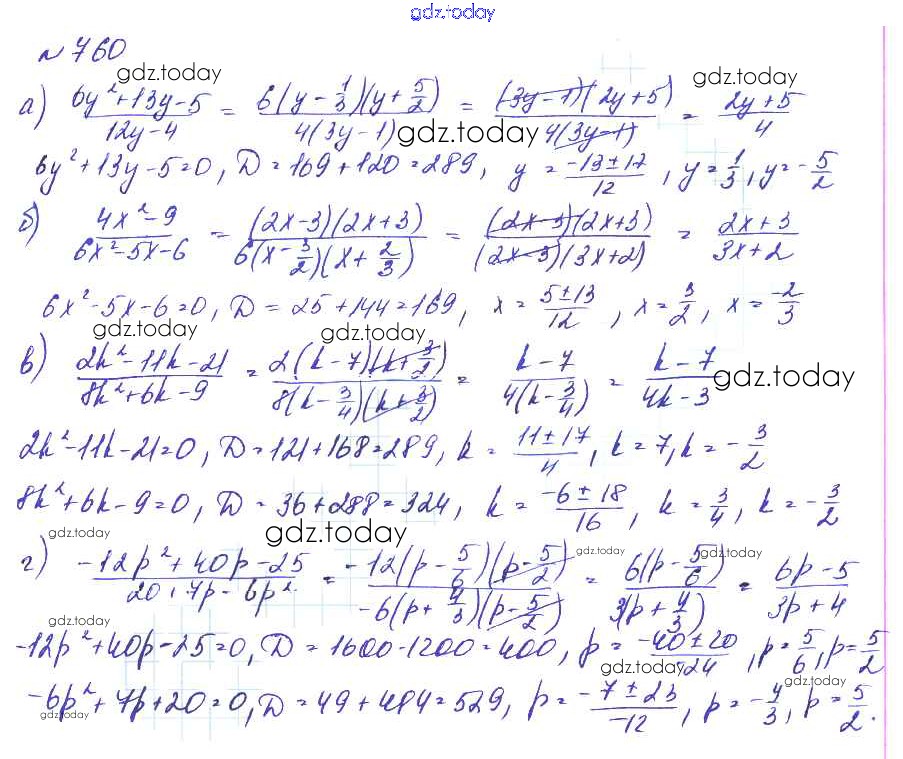 gdz.today
№ 760
gdz.today gdz.today gdz.today
а) (6y²+13y-5)/(12y-4) = 6(y-1/3)(y+5/2)/4(3y-1) = (3y-1)(2y+5)/4(3y-1) = (2y+5)/4
gdz.today
6y²+13y-5=0, D=169+120=289, y=(-13±17)/12, y=1/3, y=-5/2
б) (4x²-9)/(6x²-5x-6) = (2x-3)(2x+3)/6(x-3/2)(x+2/3) = (2x-3)(2x+3)/(2x-3)(3x+2) = (2x+3)/(3x+2)
6x²-5x-6=0, D=25+144=169, x=(5±13)/12, x=3/2, x=-2/3
gdz.today gdz.today
в) (2k²-11k-21)/(8k²+6k-9) = 2(k-7)(k+3/2)/8(k-3/4)(k+3/2) = (k-7)/4(k-3/4) = (k-7)/(4k-3)
gdz.today
2k²-11k-21=0, D=121+168=289, k=(11±17)/4, k=7, k=-3/2
8k²+6k-9=0, D=36+288=324, k=(-6±18)/16, k=3/4, k=-3/2
gdz.today gdz.today gdz.today
г) (-12p²+40p-25)/(20+7p-6p²) = -12(p-5/6)(p-5/2)/-6(p+4/3)(p-5/2) = 6(p-5/6)/3(p+4/3) = (6p-5)/(3p+4)
gdz.today gdz.today gdz.today
-12p²+40p-25=0, D=1600-1200=400, p=(-40±20)/-24, p=5/6, p=5/2
gdz.today gdz.today gdz.today
-6p²+7p+20=0, D=49+484=529, p=(-7±23)/-12, p=-4/3, p=5/2.
gdz.today gdz.today